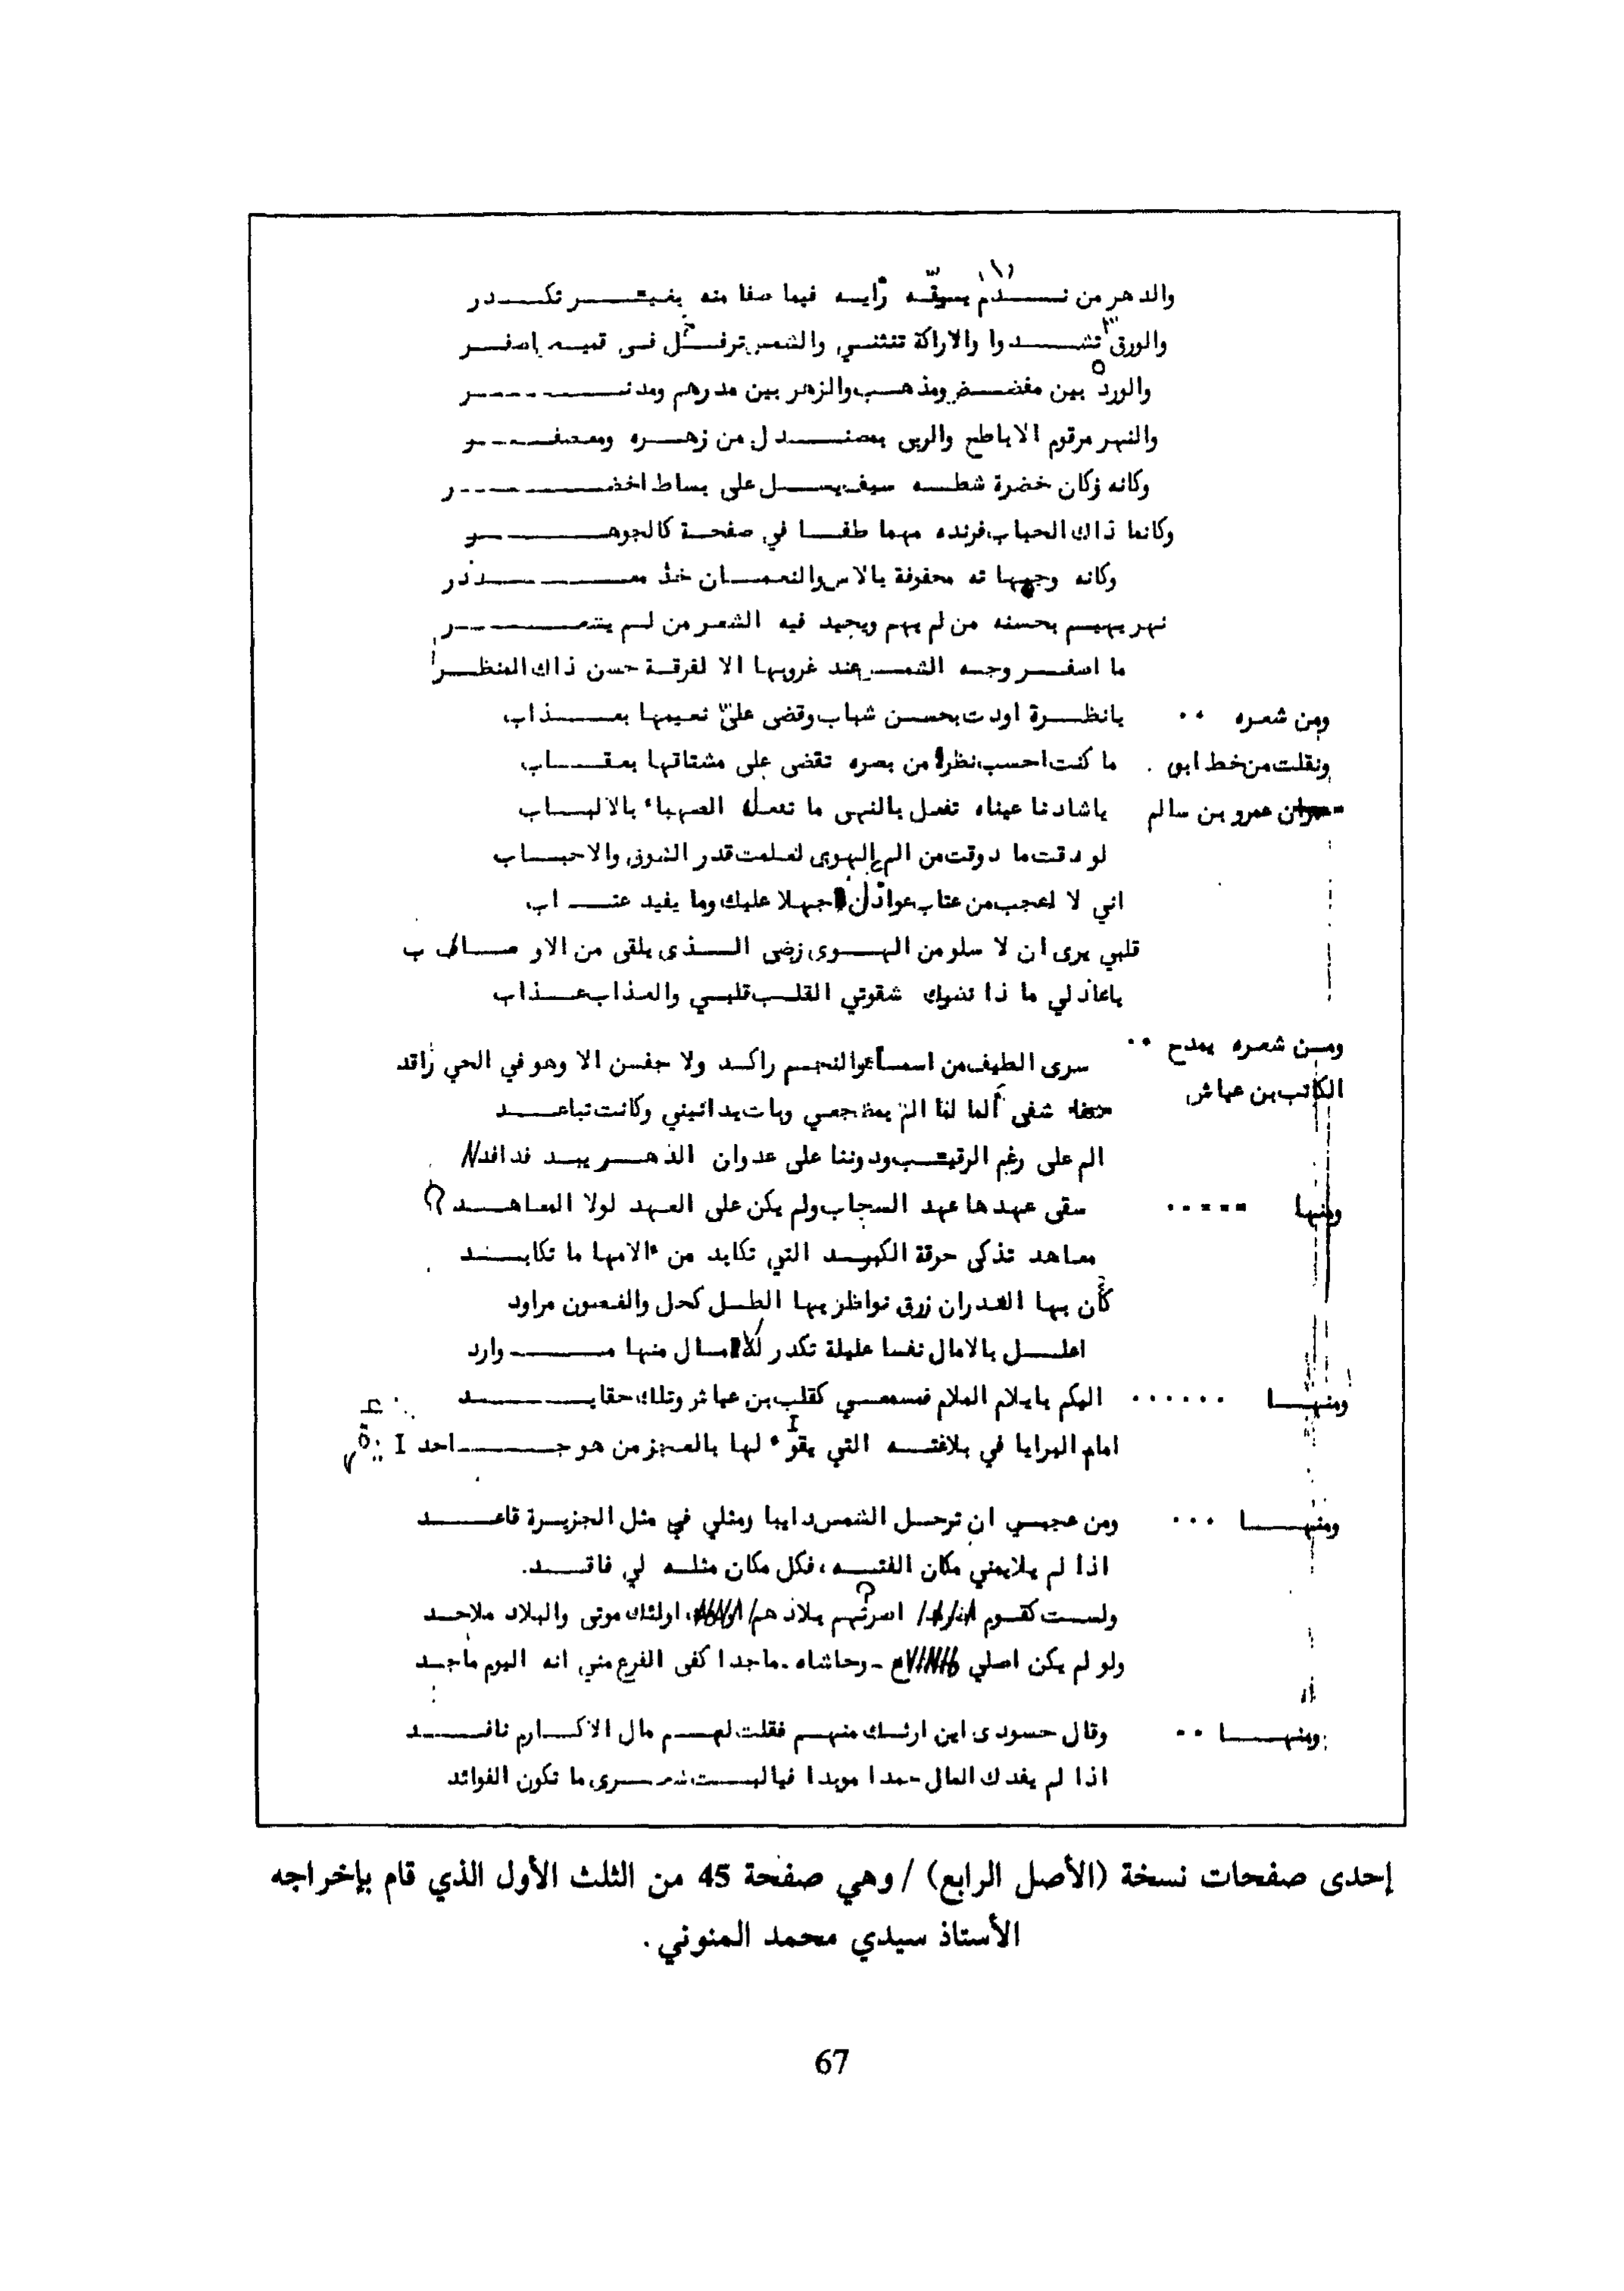 والدهر من نـدم يسفّه رأيه فيما صفا منه بغيـر تكـدر
والورق تشـدوا والاراكة تنثنـي والشمس ترفـل فـي قميـص اصفـر
والورد بين مفضـض ومذهـب والزهر بين مدرهم ومدنـر
والنهر مرقوم الاباطح والربى بمصنـدل من زهـره ومعصفـر
وكانه وكان خضرة شطـه سيف يسـل على بساط اخضـر
وكانما ذاك الحباب فرنده مهما طفـا في صفحـة كالجوهـر
وكانه وجهاته محفوفة بالاس والنعمـان خد معـذر
نهر يهيـم بحسنه من لم يهم ويجيد فيه الشعـر من لـم يشعـر
ما اصفـر وجـه الشمـس عند غروبها الا لفرقـة حسن ذاك المنظـر
ومن شعره .. يانظـرة اودت بحسـن شباب وقضى عليّ نعيمها بعـذاب
ونقلت من خط ابي . ما كنت احسب نظرة من بصره تقضى على مشتاقها بعقـاب
عمرو بن سالم ياشادنا عيناه تفعـل بالنهى ما تفعله الصهباء بالالبـاب
لو دقت ما دوقت من الم الهوى لعلمت قدر الشوق والاحبـاب
اني لا لعجب من عتاب عواذل جهلا عليك وما يفيد عتـاب
قلبي يرى ان لا سلو من الهـوى رضى الـذي يلقى من الاوصـاب
ياعاذلي ما ذا تضرك شقوتي القلـب قلبـي والعذاب عـذاب
ومـن شعره يمدح .. سرى الطيف من اسمـاء والنجـم راكـد ولا جفـن الا وهو في الحي راقد
الكاتب بن عياش شفى ألما لما الم بمضجعـي وبات يدانيني وكانت تباعـد
الم على رغم الرقيـب ودوننا على عدوان الدهـر بيـد فدافد
ومنها ..... سقى عهدها عهد السحاب ولم يكن على العهد لولا المعاهـد ؟
معاهد تذكى حرقة الكبـد التي تكابد من ءالامها ما تكابـد
كأن بها الغدران زرق نواظر بها الطـل كحل والغصون مراود
اعلـل بالامال نفسا عليلة تكدر للامـال منها مـوارد
ومنهـا ...... اليكم يايلام الملام فسمعـي كقلب بن عياش وتلك حقايـد
امام البرايا في بلاغتـه التي يقر لها بالعجز من هو جـاحد I
ومنهـا ... ومن عجبـي ان ترحـل الشمس دايبا ومثلي في مثل الجزيـرة قاعـد
اذا لم يلايمني مكان الفتـه ، فكل مكان مثلـه لي فاقـد.
ولسـت كقـوم اسرتهم بلادهم ، اولئك موتى والبلاد ملاحـد
ولو لم يكن اصلي - وحاشاه - ماجدا كفى الفرع مني انه اليوم ماجـد
ومنهـا .. وقال حسودي اين ارثـك منهـم فقلت لهـم مال الاكـارم نافـد
اذا لم يفدك المال حمدا موبدا فياليـت شعـري ما تكون الفوائد
إحدى صفحات نسخة (الأصل الرابع) / وهي صفحة 45 من الثلث الأول الذي قام بإخراجه
الأستاذ سيدي محمد المنوني .
67